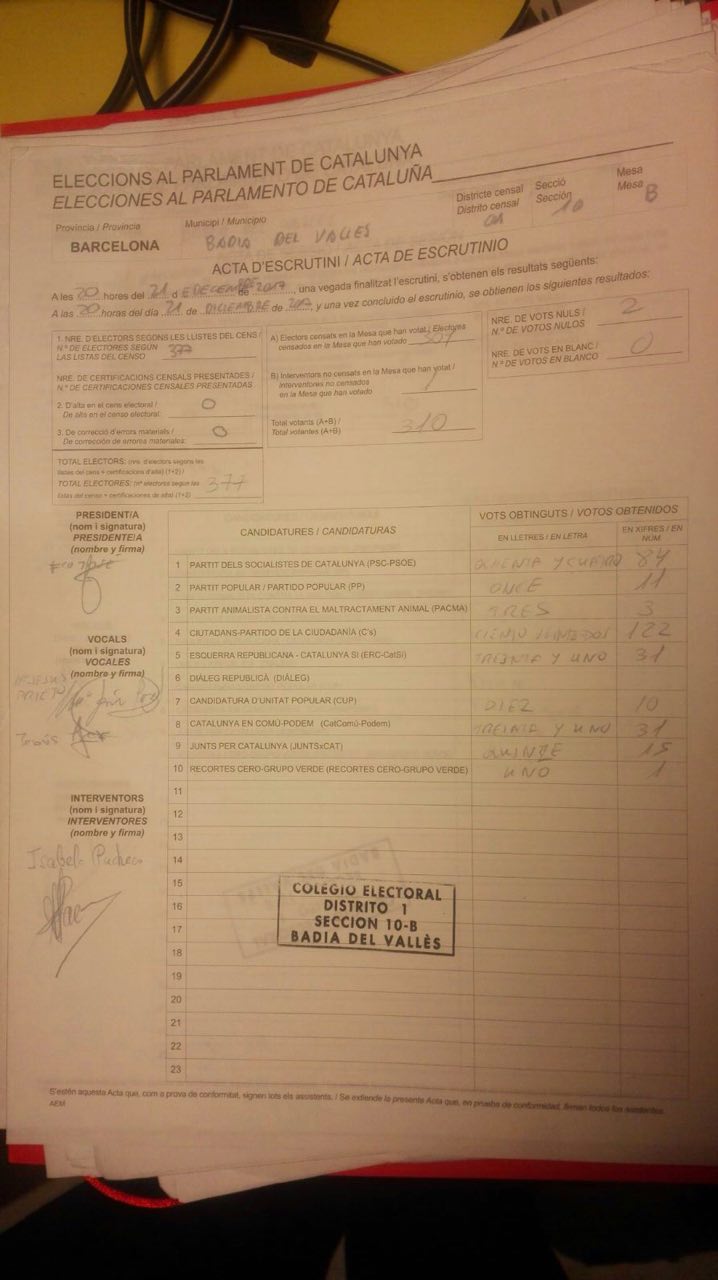 ELECCIONS AL PARLAMENT DE CATALUNYA
ELECCIONES AL PARLAMENTO DE CATALUÑA
Província / Provincia
BARCELONA
Municipi / Municipio
BADIA DEL VALLES
Districte censal
Distrito censal
01
Secció
Sección
10
Mesa
Mesa
B
ACTA D'ESCRUTINI / ACTA DE ESCRUTINIO
A les 20 hores del 21 d E DECEMBRE 2017, una vegada finalitzat l'escrutini, s'obtenen els resultats següents:
A las 20 horas del día 21 de DICIEMBRE de 2017 y una vez concluido el escrutinio, se obtienen los siguientes resultados:
1. NRE. D'ELECTORS SEGONS LES LLISTES DEL CENS /
N.º DE ELECTORES SEGÚN
LAS LISTAS DEL CENSO 377
NRE. DE CERTIFICACIONS CENSALS PRESENTADES /
N.º DE CERTIFICACIONES CENSALES PRESENTADAS
2. D'alta en el cens electoral /
De alta en el censo electoral: 0
3. De correcció d'errors materials /
De corrección de errores materiales: 0
TOTAL ELECTORS: (nre. d'electors segons les
llistes del cens + certificacions d'alta) (1+2) /
TOTAL ELECTORES: (nº electores según las
listas del censo + certificaciones de alta) (1+2) 377
A) Electors censats en la Mesa que han votat / Electores
censados en la Mesa que han votado
B) Interventors no censats en la Mesa que han votat /
Interventores no censados
en la Mesa que han votado
Total votants (A+B) /
Total votantes (A+B) 310
NRE. DE VOTS NULS /
N.º DE VOTOS NULOS 2
NRE. DE VOTS EN BLANC /
N.º DE VOTOS EN BLANCO 0
PRESIDENT/A
(nom i signatura)
PRESIDENTE/A
(nombre y firma)
VOCALS
(nom i signatura)
VOCALES
(nombre y firma)
PRIETO
INTERVENTORS
(nom i signatura)
INTERVENTORES
(nombre y firma)
Isabel Pacheco
CANDIDATURES / CANDIDATURAS
VOTS OBTINGUTS / VOTOS OBTENIDOS
EN LLETRES / EN LETRA
EN XIFRES / EN NÚM
1 PARTIT DELS SOCIALISTES DE CATALUNYA (PSC-PSOE) OCHENTA Y CUATRO 84
2 PARTIT POPULAR / PARTIDO POPULAR (PP) ONCE 11
3 PARTIT ANIMALISTA CONTRA EL MALTRACTAMENT ANIMAL (PACMA) TRES 3
4 CIUTADANS-PARTIDO DE LA CIUDADANÍA (C's) CIENTO 122
5 ESQUERRA REPUBLICANA - CATALUNYA SI (ERC-CatSí) TREINTA Y UNO 31
6 DIÀLEG REPUBLICÀ (DIÀLEG)
7 CANDIDATURA D'UNITAT POPULAR (CUP) DIEZ 10
8 CATALUNYA EN COMÚ-PODEM (CatComú-Podem) TREINTA Y UNO 31
9 JUNTS PER CATALUNYA (JUNTSxCAT) QUINZE 15
10 RECORTES CERO-GRUPO VERDE (RECORTES CERO-GRUPO VERDE) UNO 1
11
12
13
14
15
16
17
18
19
20
21
22
23
COLEGIO ELECTORAL
DISTRITO 1
SECCION 10-B
BADIA DEL VALLÈS
S'estén aquesta Acta que, com a prova de conformitat, signen tots els assistents. / Se extiende la presente Acta que, en prueba de conformidad, firman todos los asistentes.
AEM